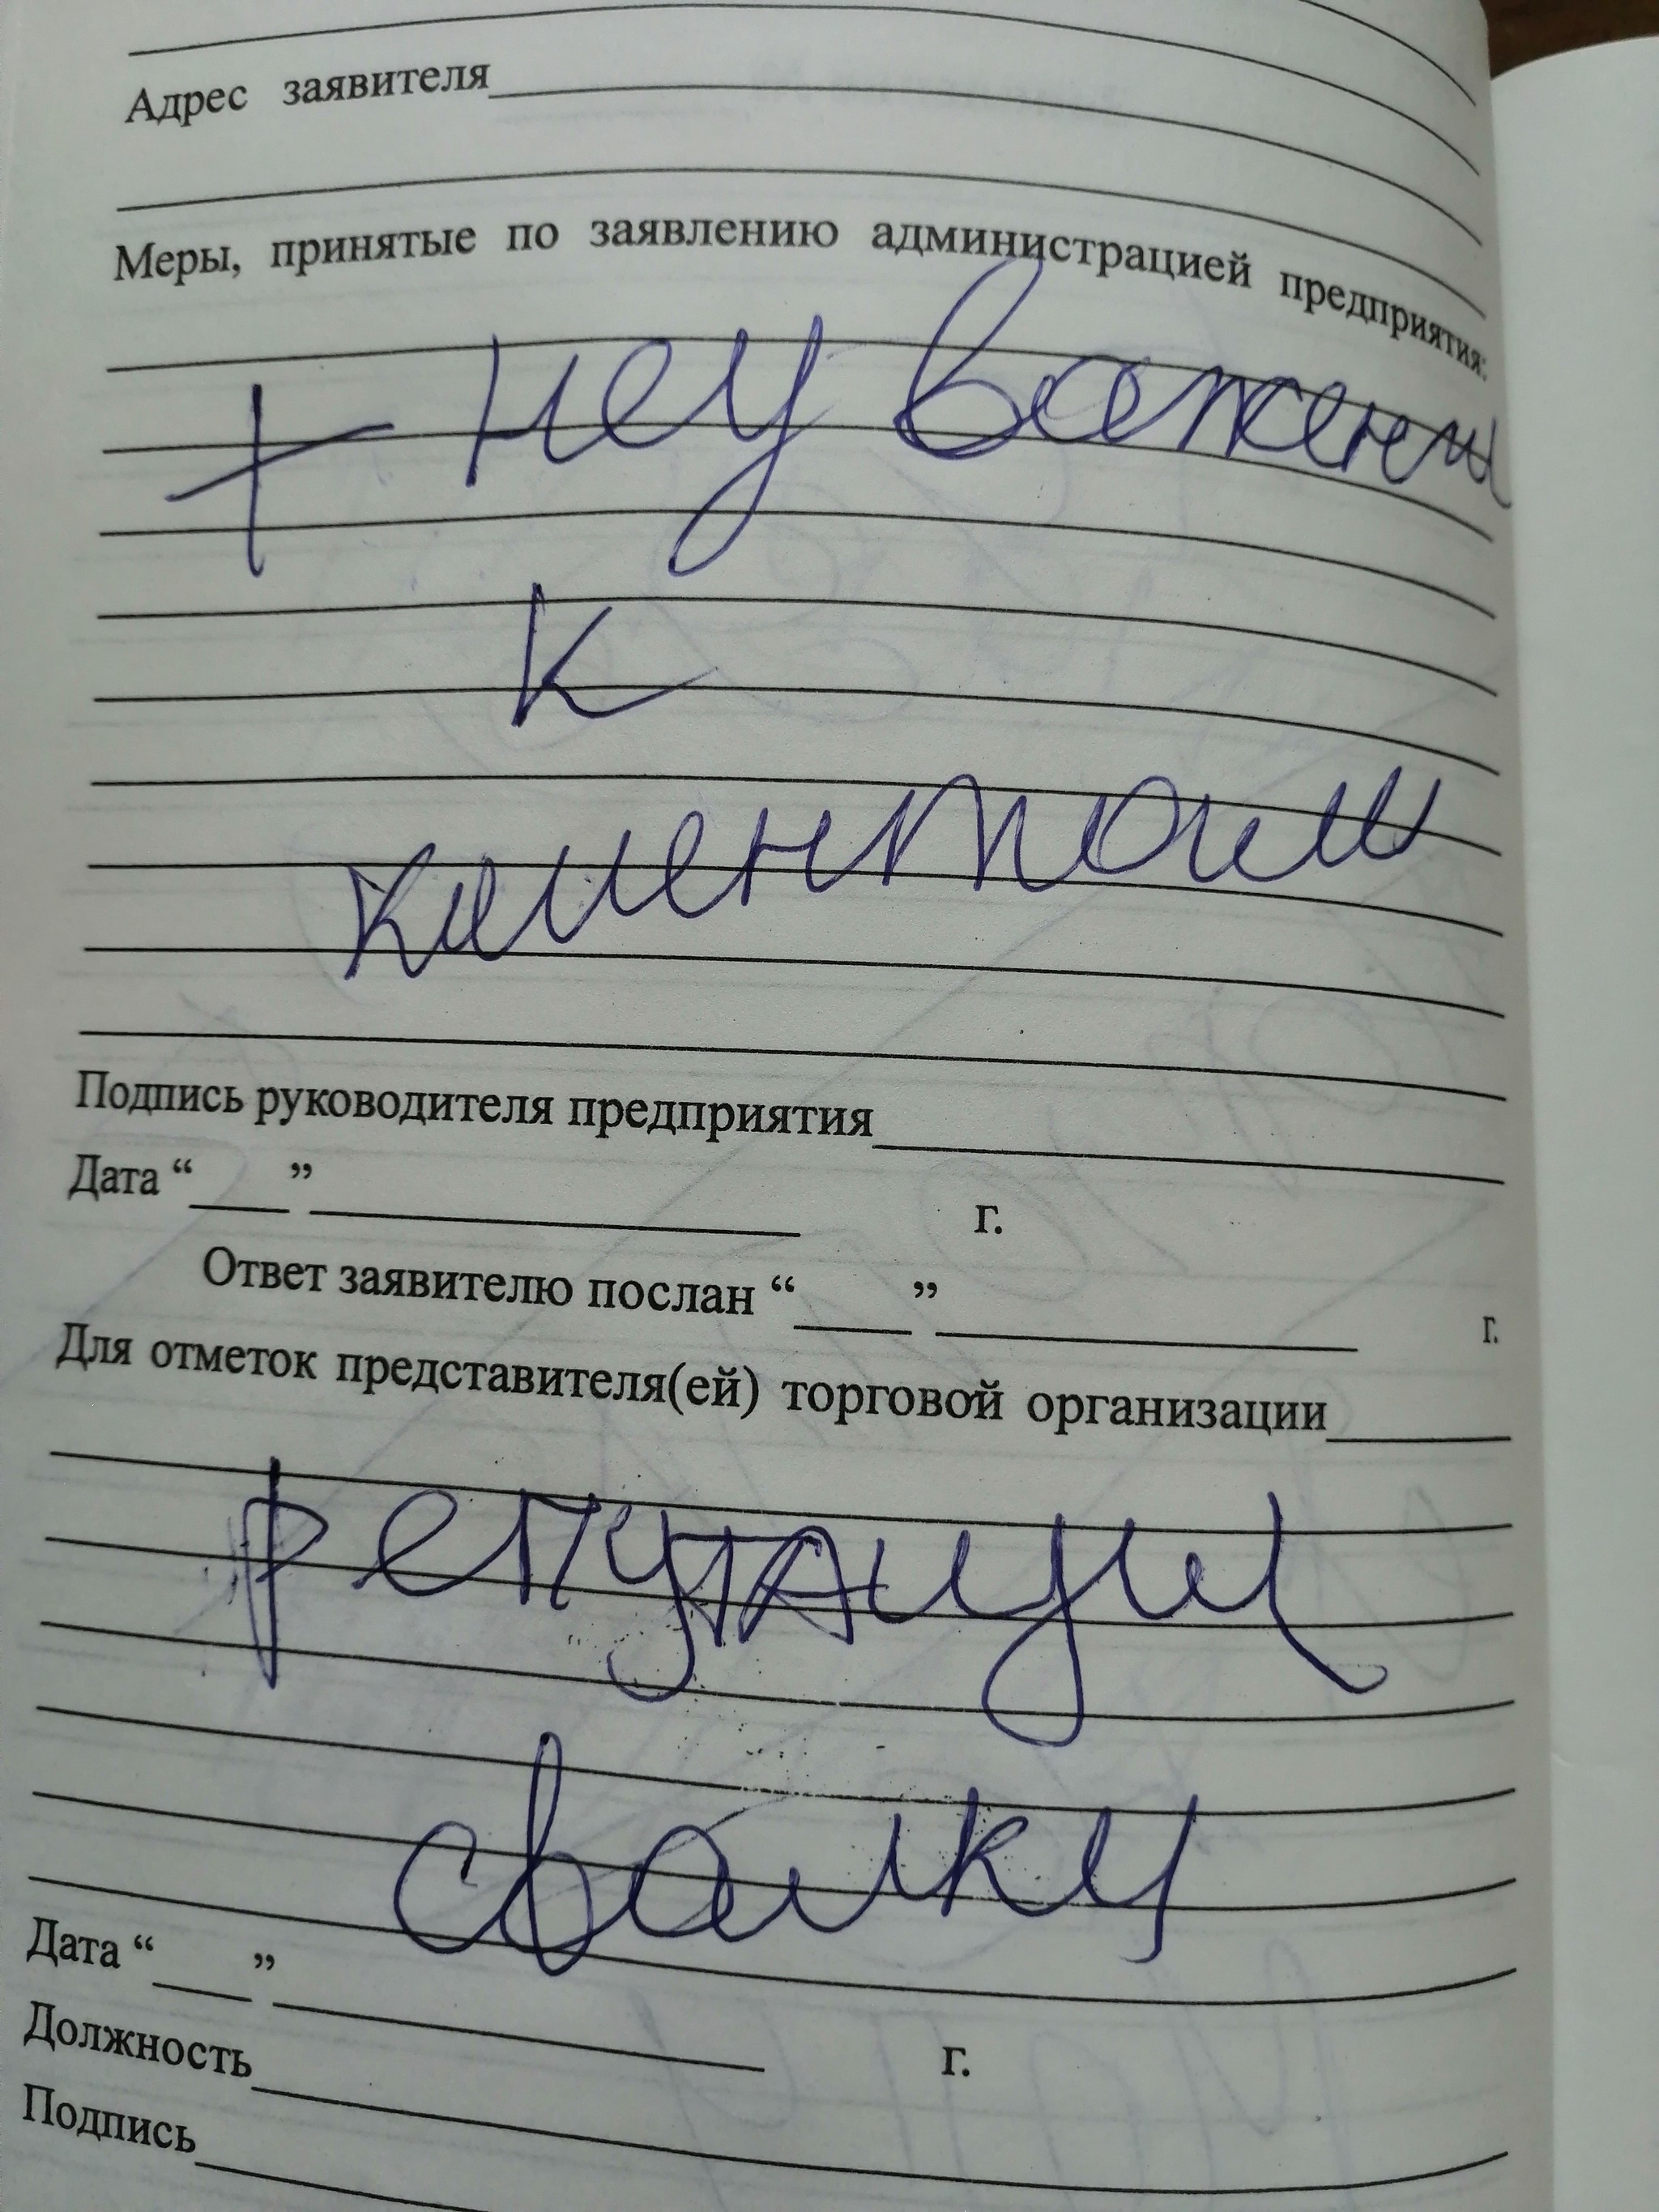 Адрес заявителя
Меры, принятые по заявлению администрацией предприятия:
+ неуважени
к
клиентам
Подпись руководителя предприятия
Дата “ ” г.
Ответ заявителю послан “ ” г.
Для отметок представителя(ей) торговой организации
репутации
свалку
Дата “ ” г.
Должность
Подпись